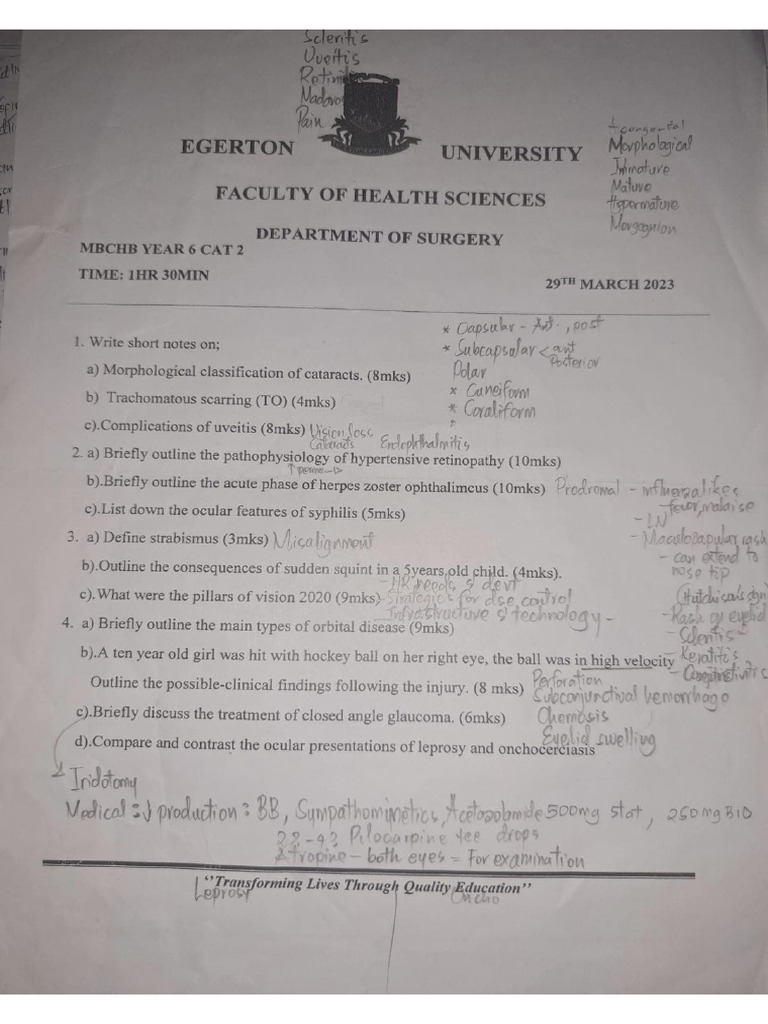 Scleritis
Uveitis
Pain
EGERTON UNIVERSITY
congenital
Morphological
Immature
Mature
Hypermature
Morgagnian
FACULTY OF HEALTH SCIENCES
DEPARTMENT OF SURGERY
MBCHB YEAR 6 CAT 2
TIME: 1HR 30MIN
29TH MARCH 2023
* Capsular - Ant., post
1. Write short notes on;
* Subcapsular < ant
Posterior
a) Morphological classification of cataracts. (8mks)
Polar
* Cuneiform
b) Trachomatous scarring (TO) (4mks)
* Coraliform
c).Complications of uveitis (8mks) Vision loss
Cataracts Endophthalmitis
2. a) Briefly outline the pathophysiology of hypertensive retinopathy (10mks)
b).Briefly outline the acute phase of herpes zoster ophthalimcus (10mks) Prodromal - influenza likes
fever, malaise
c).List down the ocular features of syphilis (5mks)
- LN
3. a) Define strabismus (3mks) Misalignment
- Maculopapular rash
- can extend to
nose top
b).Outline the consequences of sudden squint in a 5years,old child. (4mks).
- HR needs & devt
c).What were the pillars of vision 2020 (9mks) Strategies for dse control
Infrastructure & technology -
- Rash of eyelid
4. a) Briefly outline the main types of orbital disease (9mks)
- Scleritis
b).A ten year old girl was hit with hockey ball on her right eye, the ball was in high velocity
Keratitis
- Conjunctivitis
Outline the possible-clinical findings following the injury. (8 mks) Perforation
Subconjunctival hemorrhage
c).Briefly discuss the treatment of closed angle glaucoma. (6mks) Chemosis
Eyelid swelling
d).Compare and contrast the ocular presentations of leprosy and onchocerciasis
Iridotomy
Medical : ↓ production : BB, Sympathomimetics, Acetozolamide 500mg stat, 250mg BID
Pilocarpine eye drops
Atropine - both eyes = For examination
‘’Transforming Lives Through Quality Education’’
Leprosy Oncho